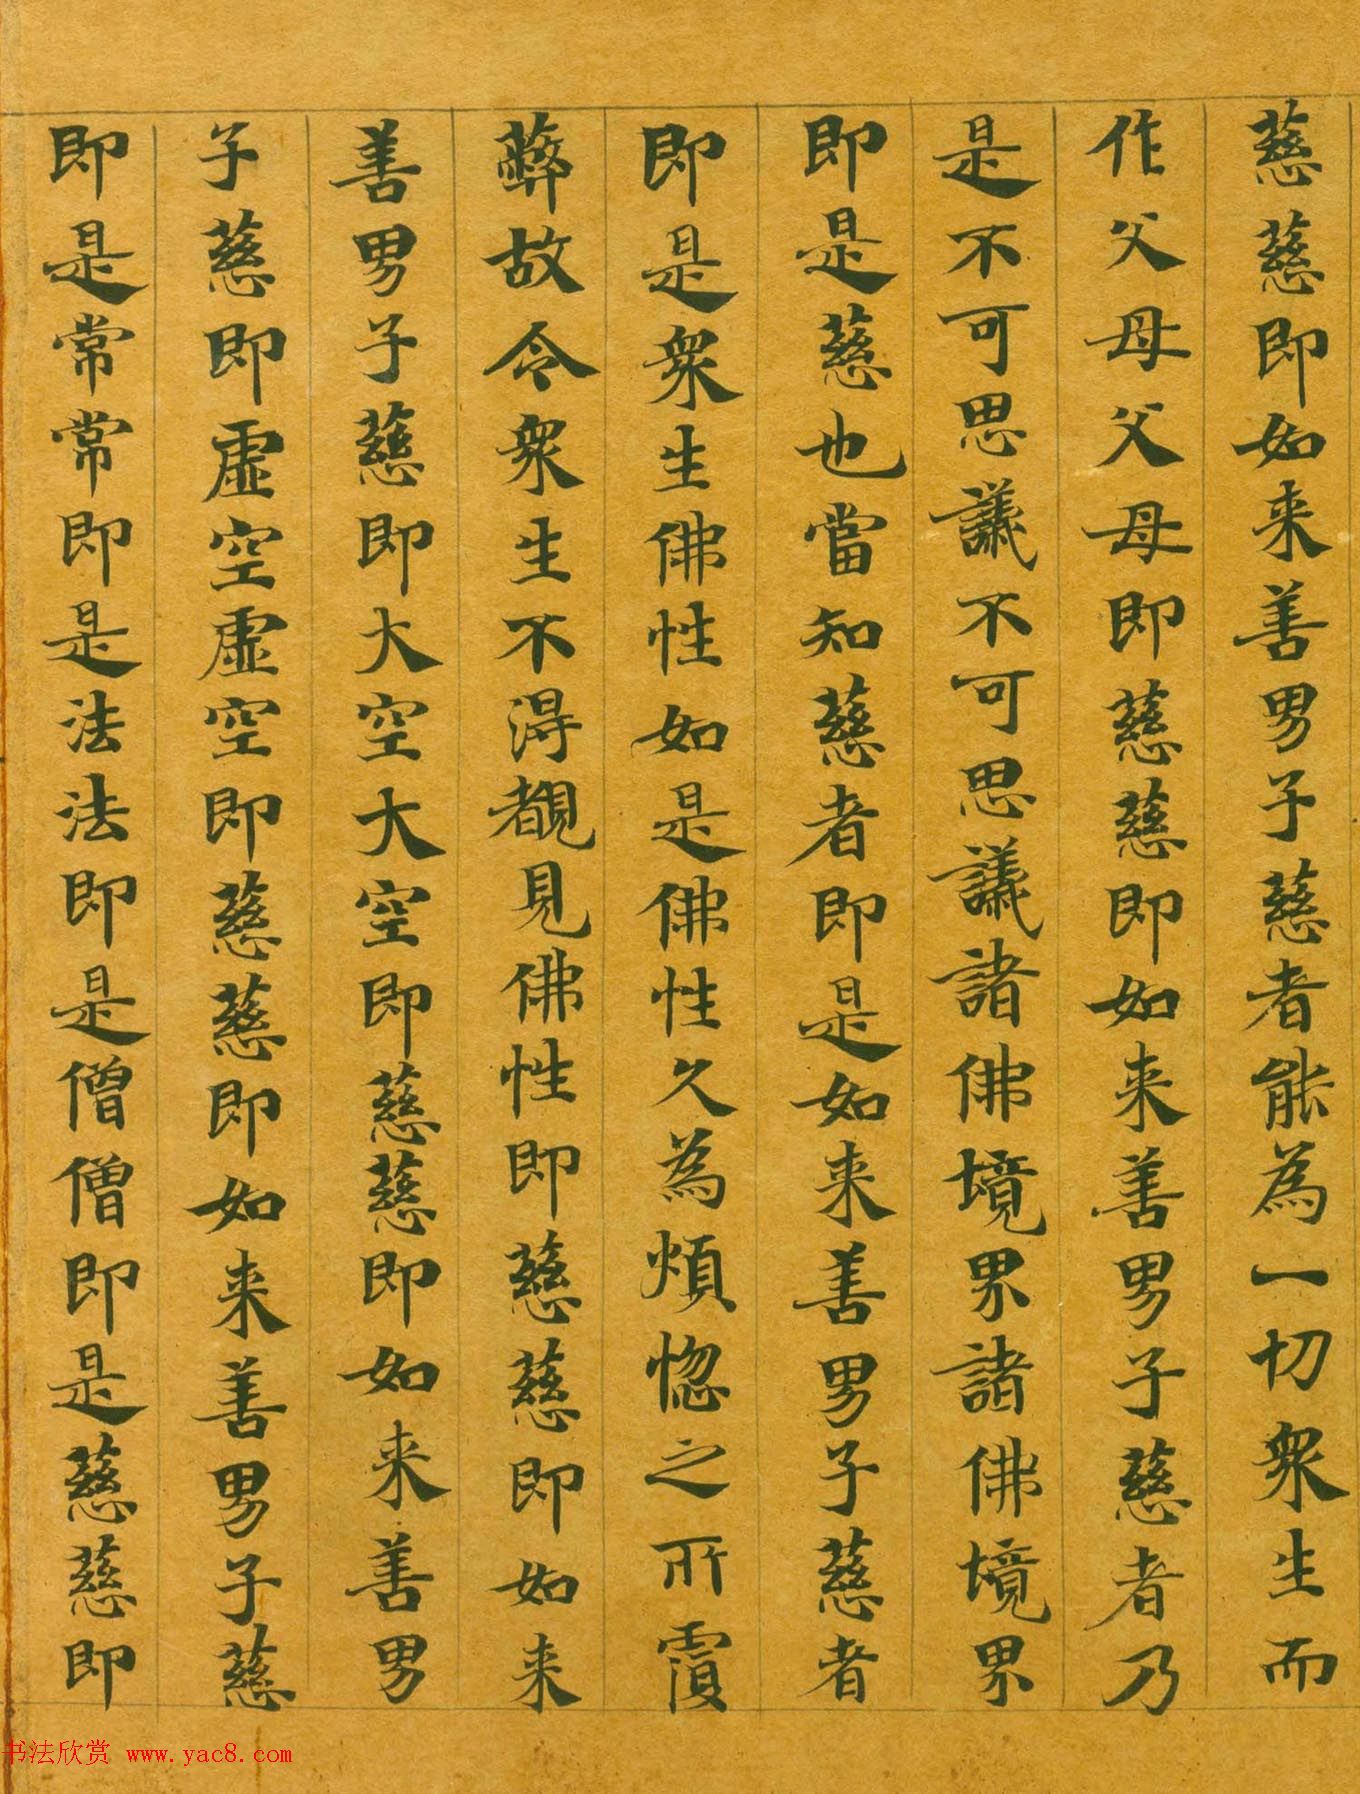 慈慈即如来善男子慈者能為一切衆生而
作父母父母即慈慈即如来善男子慈者乃
是不可思議不可思議諸佛境界諸佛境界
即是慈也當知慈者即是如来善男子慈者
即是衆生佛性如是佛性久為煩惚之所覆
蔽故令衆生不得覩見佛性即慈慈即如来
善男子慈即大空大空即慈慈即如来善男
子慈即虚空虚空即慈慈即如来善男子慈
即是常常即是法法即是僧僧即是慈慈即
书法欣赏 www.yac8.com